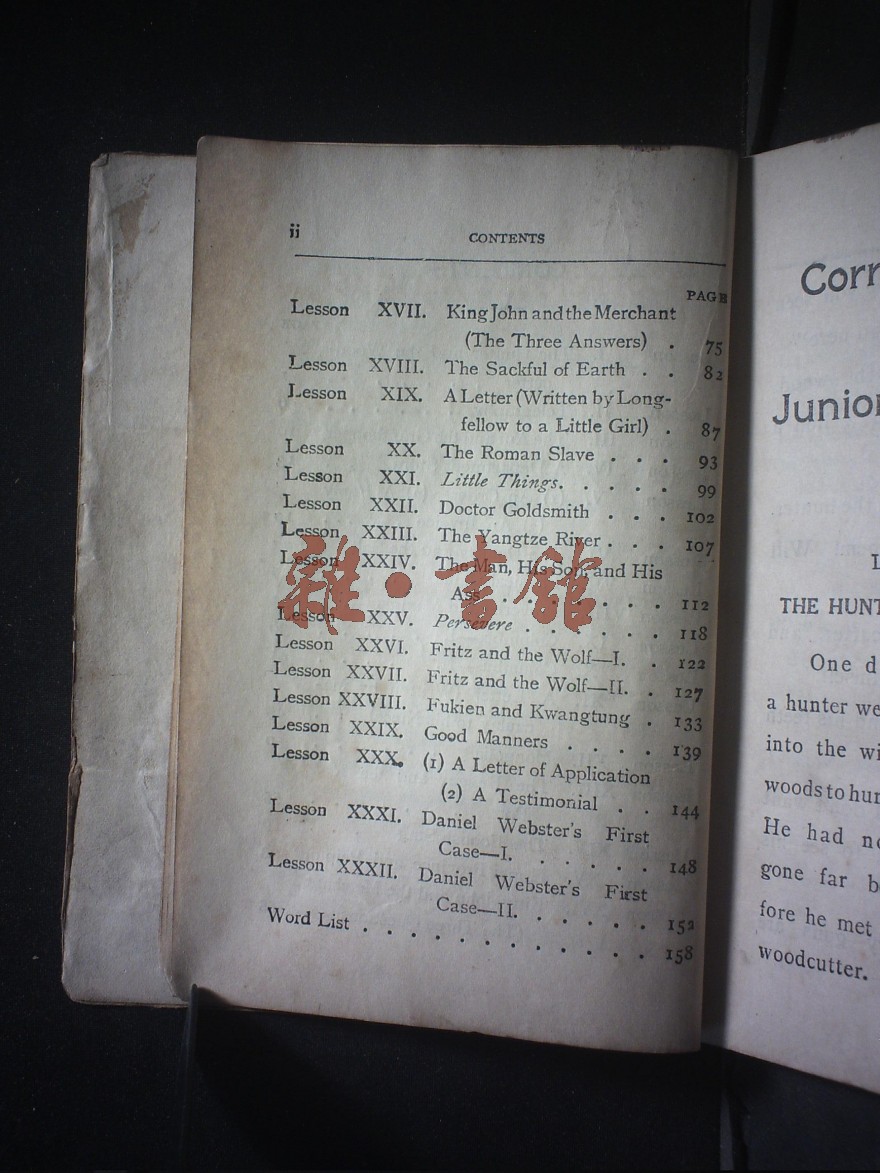 ii
CONTENTS
PAGE
Lesson XVII. King John and the Merchant
(The Three Answers) . 75
Lesson XVIII. The Sackful of Earth . . 82
Lesson XIX. A Letter (Written by Long-
fellow to a Little Girl) . 87
Lesson XX. The Roman Slave . . . 93
Lesson XXI. Little Things. . . . . 99
Lesson XXII. Doctor Goldsmith . . . 102
Lesson XXIII. The Yangtze River . . . 107
Lesson XXIV. The Man, His Son, and His
Ass . . . . . . . 112
Lesson XXV. Persevere . . . . . . 118
Lesson XXVI. Fritz and the Wolf—I. . 122
Lesson XXVII. Fritz and the Wolf—II. . 127
Lesson XXVIII. Fukien and Kwangtung . 133
Lesson XXIX. Good Manners . . . . 139
Lesson XXX. (1) A Letter of Application
(2) A Testimonial . . 144
Lesson XXXI. Daniel Webster's First
Case—I. . . . . . 148
Lesson XXXII. Daniel Webster's First
Case—II. . . . . . 152
Word List . . . . . . . . . . . 158
雜·書館
Junior
THE HUNT
One d
a hunter we
into the wi
woods to hun
He had no
gone far b
fore he met
woodcutter.